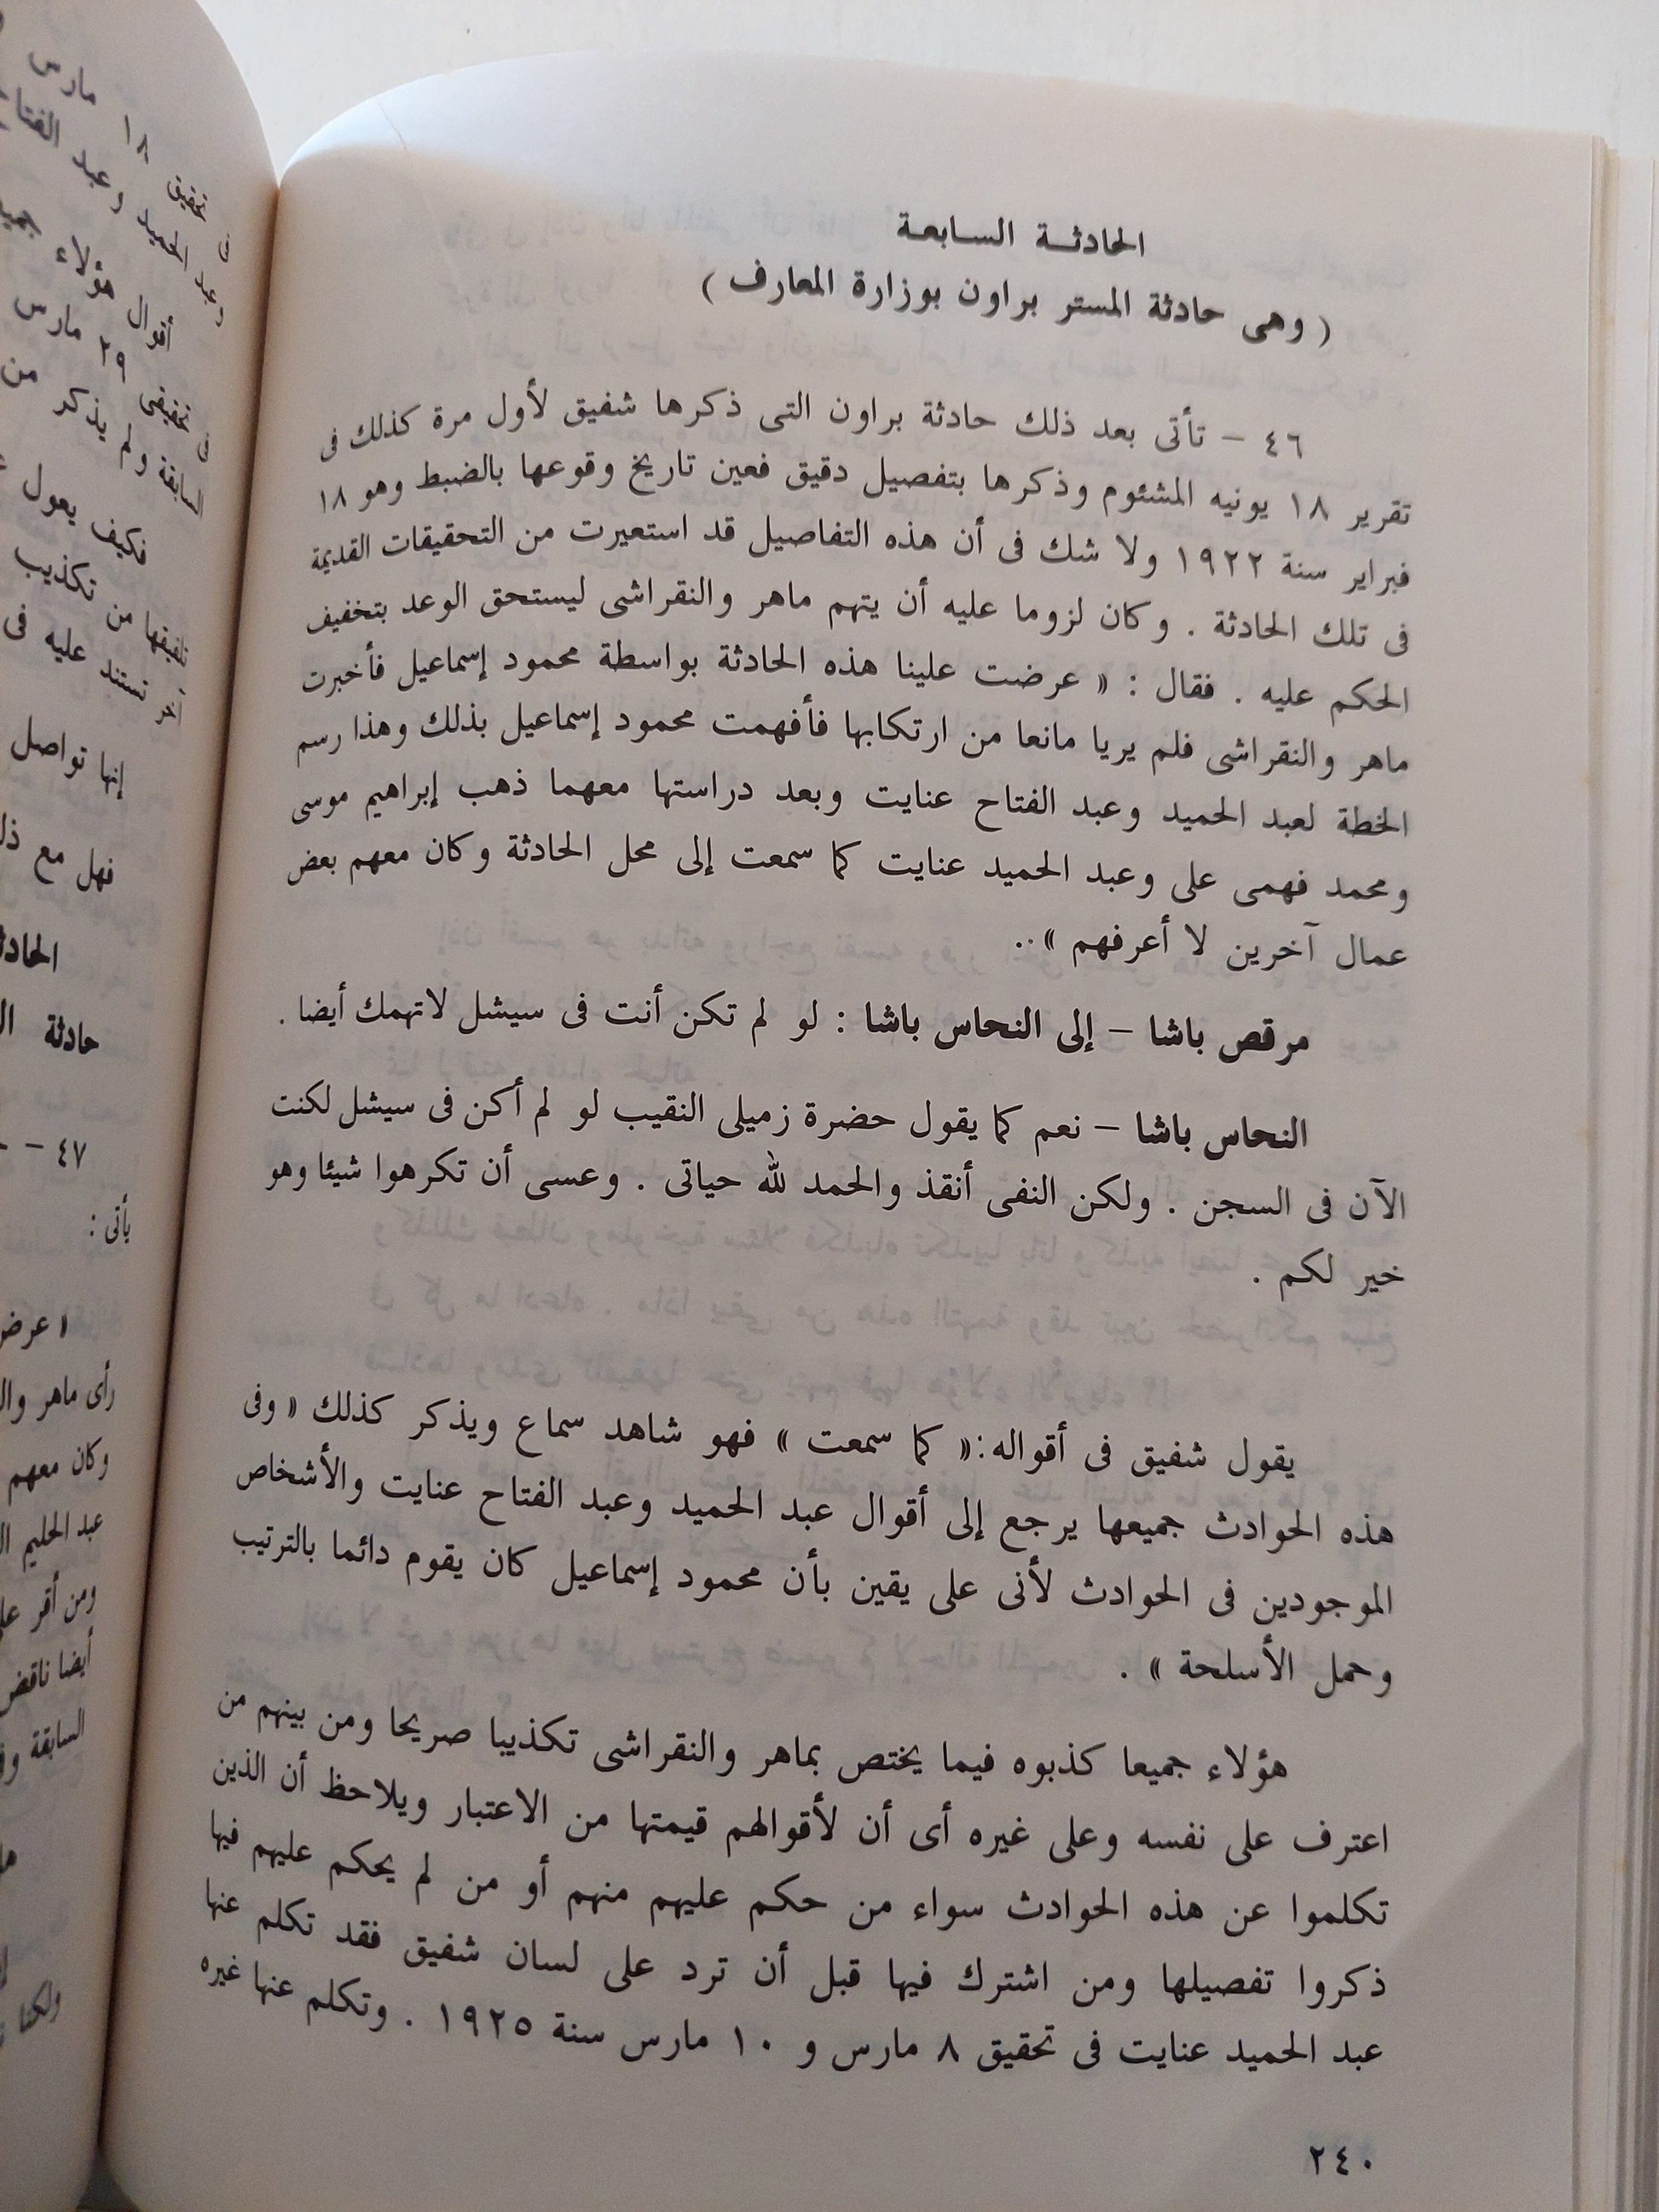 الحادثة السابعة
( وهى حادثة المستر براون بوزارة المعارف )
٤٦ – تأتى بعد ذلك حادثة براون التى ذكرها شفيق لأول مرة كذلك فى
تقرير ١٨ يونيه المشئوم وذكرها بتفصيل دقيق فعين تاريخ وقوعها بالضبط وهو ١٨
فبراير سنة ١٩٢٢ ولا شك فى أن هذه التفاصيل قد استعيرت من التحقيقات القديمة
فى تلك الحادثة . وكان لزوما عليه أن يتهم ماهر والنقراشى ليستحق الوعد بتخفيف
الحكم عليه . فقال : « عرضت علينا هذه الحادثة بواسطة محمود إسماعيل فأخبرت
ماهر والنقراشى فلم يريا مانعا من ارتكابها فأفهمت محمود إسماعيل بذلك وهذا رسم
الخطة لعبد الحميد وعبد الفتاح عنايت وبعد دراستها معهما ذهب إبراهيم موسى
ومحمد فهمى على وعبد الحميد عنايت كما سمعت إلى محل الحادثة وكان معهم بعض
عمال آخرين لا أعرفهم » ..
مرقص باشا – إلى النحاس باشا : لو لم تكن أنت فى سيشل لاتهمك أيضا .
النحاس باشا – نعم كما يقول حضرة زميلى النقيب لو لم أكن فى سيشل لكنت
الآن فى السجن . ولكن النفى أنقذ والحمد لله حياتى . وعسى أن تكرهوا شيئا وهو
خير لكم .
يقول شفيق فى أقواله : « كما سمعت » فهو شاهد سماع ويذكر كذلك « وفى
هذه الحوادث جميعها يرجع إلى أقوال عبد الحميد وعبد الفتاح عنايت والأشخاص
الموجودين فى الحوادث لأنى على يقين بأن محمود إسماعيل كان يقوم دائما بالترتيب
وحمل الأسلحة » .
هؤلاء جميعا كذبوه فيما يختص بماهر والنقراشى تكذيبا صريحا ومن بينهم من
اعترف على نفسه وعلى غيره أى أن لأقوالهم قيمتها من الاعتبار ويلاحظ أن الذين
تكلموا عن هذه الحوادث سواء من حكم عليهم منهم أو من لم يحكم عليهم فيها
ذكروا تفصيلها ومن اشترك فيها قبل أن ترد على لسان شفيق فقد تكلم عنها
عبد الحميد عنايت فى تحقيق ٨ مارس و ١٠ مارس سنة ١٩٢٥ . وتكلم عنها غيره
٢٤٠